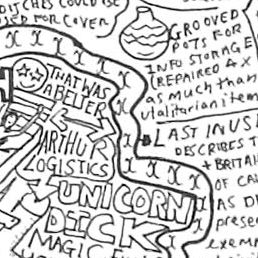 DITCHES COULD BE
USED FOR COVER
GROOVED
POTS FOR
INFO STORAGE
(REPAIRED 4X
as much than
utalitarian item
THAT WAS
A BELTER
ARTHUR
LOGISTICS
UNICORN
DICK
MAGIC
LAST IN USE
DESCRIBES T
+ BRITAI
OF CA
AS D
prese
exem